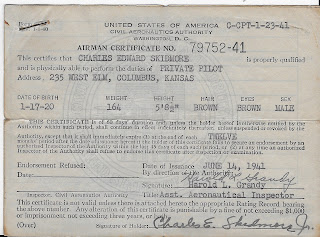 UNITED STATES OF AMERICA
C-CPT-1-23-41
CIVIL AERONAUTICS AUTHORITY
WASHINGTON, D. C.
AIRMAN CERTIFICATE NO. 79752-41
This certifies that CHARLES EDWARD SKIDMORE is properly qualified
and is physically able to perform the duties of PRIVATE PILOT
Address: 235 WEST ELM, COLUMBUS, KANSAS
DATE OF BIRTH WEIGHT HEIGHT HAIR EYES SEX
1-17-20 164 5'8½" BROWN BROWN MALE
THIS CERTIFICATE is of 60 days' duration
Authority within such period, shall continue in effect indefinitely thereafter, unless suspended or revoked by the
Authority, except that it shall immediately expire at the end of each TWELVE
Endorsement Refused: Date of Issuance: JUNE 14, 1941
Date: By direction of the Authority:
Harold L. Grandy
Signature: Harold L. Grandy
Inspector, Civil Aeronautics Authority Title Asst. Aeronautical Inspector
This certificate is not valid unless there is attached hereto the appropriate Rating Record bearing
the above number. Any alteration of this certificate is punishable by a fine of not exceeding $1,000
or imprisonment not exceeding three years, or
(Over) Signature of Holder: Charles E. Skidmore Jr.